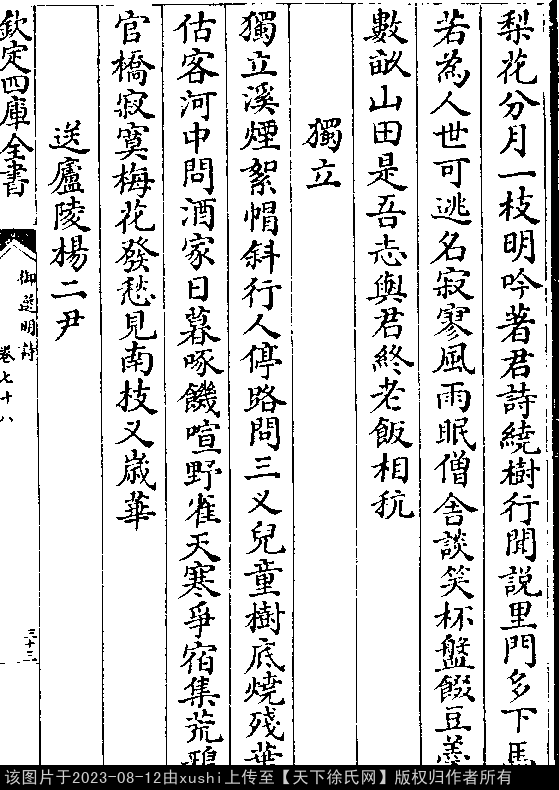 梨花分月一枝明吟著君詩繞樹行聞說里門多下馬
若為人世可逃名寂寥風雨眠僧舎談笑杯盤餟豆羮
數畝山田是吾志與君終老飯相秔
獨立
獨立溪煙絮帽斜行人停路問三义兒童樹底燒殘葉
估客河中問酒家日暮啄饑喧野雀天寒爭宿集荒鵶
官橋寂寞梅花發愁見南枝又歲華
送廬陵楊二尹
欽定四庫全書
御選明詩
卷七十八
三十三
该图片于2023-08-12由xushi上传至【天下徐氏网】版权归作者所有